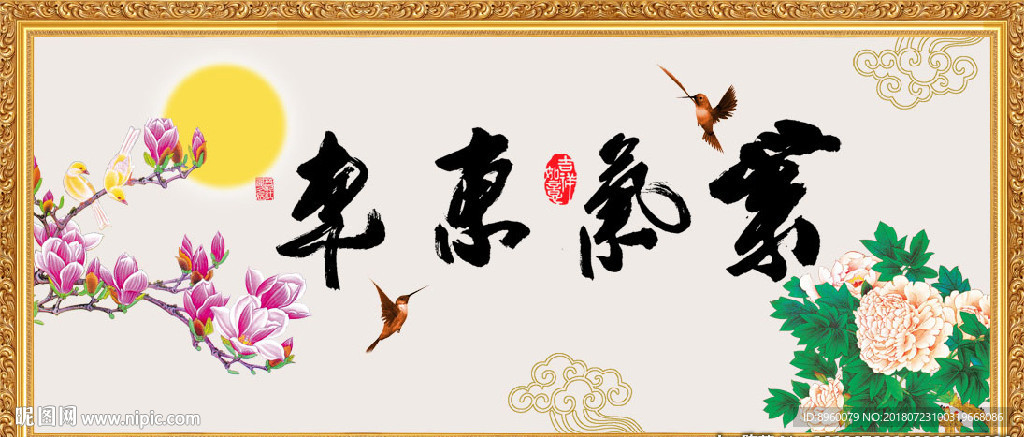 紫氣東來
吉祥如意
昵图网 www.nipic.com
ID:8960079 NO:20180723100319668086